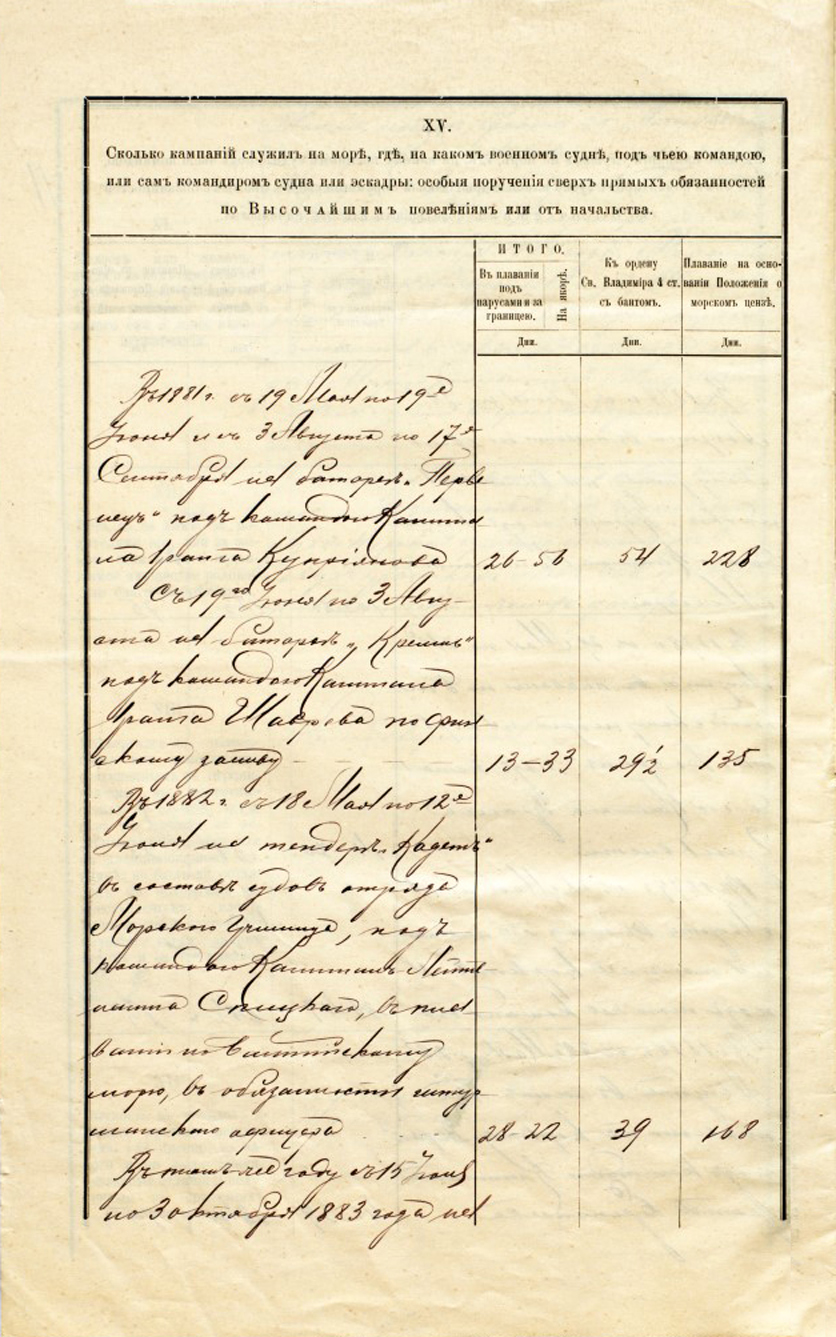 XV.
Сколько кампаній служилъ на морѣ, гдѣ, на какомъ военномъ суднѣ, подъ чьею командою,
или самъ командиромъ судна или эскадры: особыя порученія сверхъ прямыхъ обязанностей
по Высочайшимъ повелѣніямъ или отъ начальства.
ИТОГО.
Въ плаваніи
подъ
парусами и за
границею.
На якорѣ.
Къ ордену
Св. Владиміра 4 ст.
съ бантомъ.
Плаваніе на осно-
ваніи Положенія о
морскомъ цензѣ.
Дни. Дни. Дни.
Въ 1881 г. съ 19 Мая по 19е
Іюня и съ 3 Августа по 17е
Сентября на батареѣ „Перве
нецъ" подъ командою Капита
на 1 ранга Купріянова 26-56 54 228
Съ 19го Іюня по 3 Авгу-
ста на батареѣ „Кремль"
подъ командою Капитана
1 ранга по Фин
скому заливу 13-33 29½ 135
Въ 1882 г. съ 18 Мая по 12е
Іюня на тендерѣ „Кадетъ"
въ составѣ судовъ отряда
Морскаго Училища, подъ
командою Капитанъ Лейте
нанта въ пла
ваніи по Балтійскому
морю, въ обязанности штур
манскаго офицера 28-22 39 168
Въ томъ же году съ 15 Іюня
по 3 октября 1883 года на